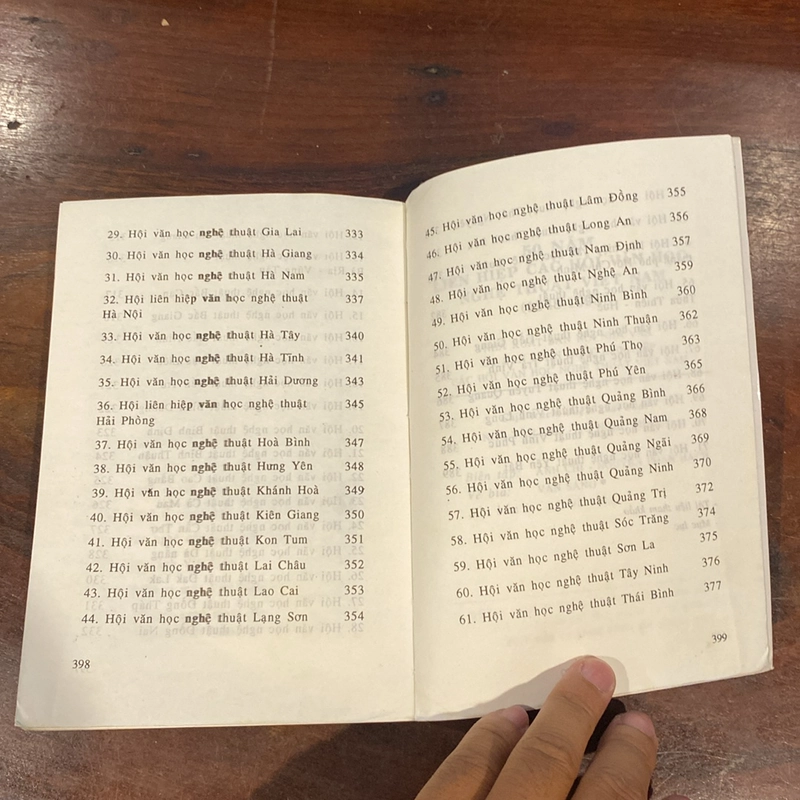 29. Hội văn học nghệ thuật Gia Lai 333
30. Hội văn học nghệ thuật Hà Giang 334
31. Hội văn học nghệ thuật Hà Nam 335
32. Hội liên hiệp văn học nghệ thuật 337
Hà Nội
33. Hội văn học nghệ thuật Hà Tây 340
34. Hội văn học nghệ thuật Hà Tĩnh 341
35. Hội văn học nghệ thuật Hải Dương 343
36. Hội liên hiệp văn học nghệ thuật 345
Hải Phòng
37. Hội văn học nghệ thuật Hoà Bình 347
38. Hội văn học nghệ thuật Hưng Yên 348
39. Hội văn học nghệ thuật Khánh Hoà 349
40. Hội văn học nghệ thuật Kiên Giang 350
41. Hội văn học nghệ thuật Kon Tum 351
42. Hội văn học nghệ thuật Lai Châu 352
43. Hội văn học nghệ thuật Lao Cai 353
44. Hội văn học nghệ thuật Lạng Sơn 354
398
45. Hội văn học nghệ thuật Lâm Đồng 355
46. Hội văn học nghệ thuật Long An 356
47. Hội văn học nghệ thuật Nam Định 357
48. Hội văn học nghệ thuật Nghệ An 359
49. Hội văn học nghệ thuật Ninh Bình 360
50. Hội văn học nghệ thuật Ninh Thuận 362
51. Hội văn học nghệ thuật Phú Thọ 363
52. Hội văn học nghệ thuật Phú Yên 365
53. Hội văn học nghệ thuật Quảng Bình 366
54. Hội văn học nghệ thuật Quảng Nam 368
55. Hội văn học nghệ thuật Quảng Ngãi 369
56. Hội văn học nghệ thuật Quảng Ninh 370
57. Hội văn học nghệ thuật Quảng Trị 372
58. Hội văn học nghệ thuật Sóc Trăng 374
59. Hội văn học nghệ thuật Sơn La 375
60. Hội văn học nghệ thuật Tây Ninh 376
61. Hội văn học nghệ thuật Thái Bình 377
399